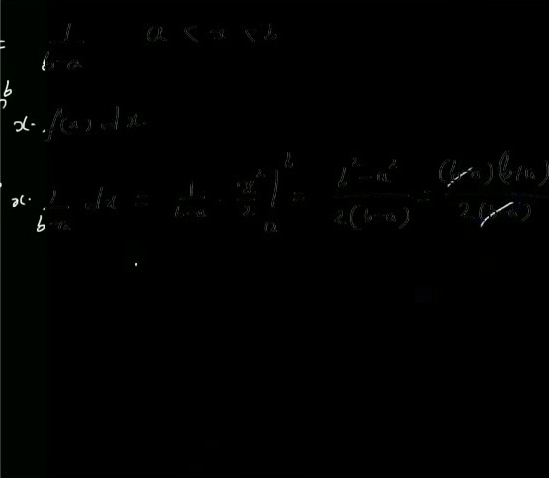 = 1/(b-a)   a < x < b
b
x · f(x) dx
x · 1/(b-a) dx = 1/(b-a) · x²/2 |ₐᵇ = (b² - a²)/(2(b-a)) = (b-a)(b+a)/(2(b-a))